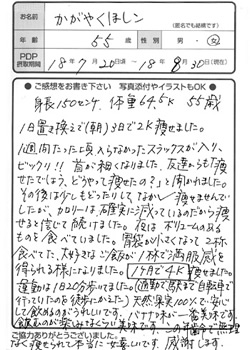 お名前
かがやくほしん
(匿名でも結構です)
年齢
55歳
性別
男・女
PDP
摂取期間
18年7月20日頃~18年8月30日(現在)
●ご感想をお書き下さい 写真添付やイラストもOK●
身長150センチ 体重64.5K 55歳
1日置き換えで(朝)3日で2K痩せました。
1週間たったら入らなかったスラックスが入り、
ビックリ!! 首が細くなりました。友達からも「痩
せたでしょう、どうやって痩せたの?」と聞かれました。
その後は少しもどったりして、なかなか痩せませんで
したが、カロリーは確実に減っているのだから痩
せると信じて続けました。夜はボリュームのある
ものを食べていました。胃袋が小さくなって2杯
食べてた、大好きなご飯が1杯で満腹感を
得られる様になりました。1ケ月で4K痩せました。
運動は1日20分歩いてました。(通勤で駅まで自転車で
行っていたのを徒歩にかえた)天然果実100%で、安心
して飲めるのがうれしいです。バナナ味が一番美味です。
飲むのが楽しみなくらい美味です。この年齢で無理
なく痩せられて本当に嬉しいです。感謝します。
ご協力ありがとうございました